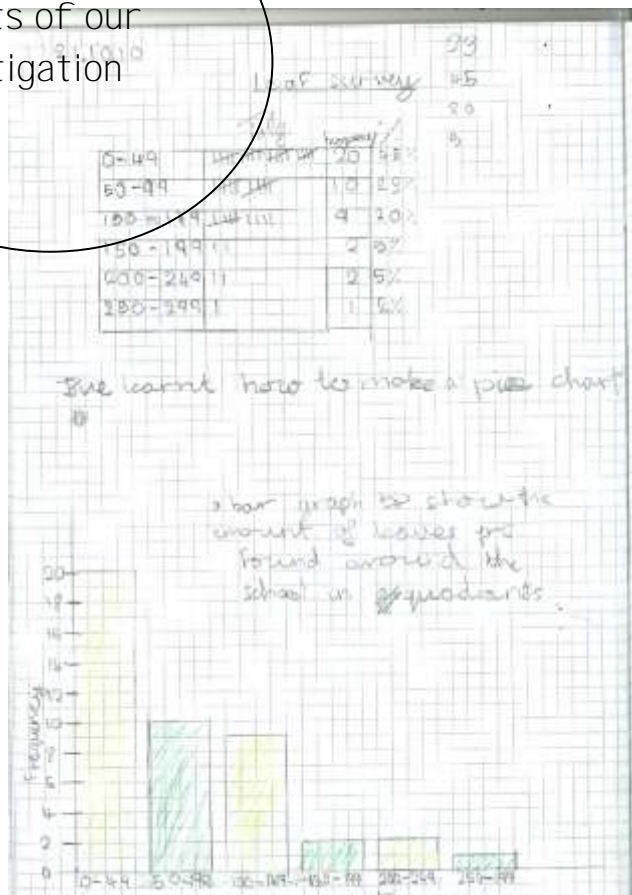 ts of our
tigation
Leaf survey
Tally frequency %
0-49 20 45%
50-99 10 25%
100-149 9 20%
150-199 2 5%
200-249 2 5%
250-299 1 5%
I've learnt how to make a pie chart
a bar graph to show the
amount of leaves
found around the
school in
Frequency
20
18
16
14
12
10
8
6
4
2
0
0-49 50-99 100-149 150-199 200-249 250-299